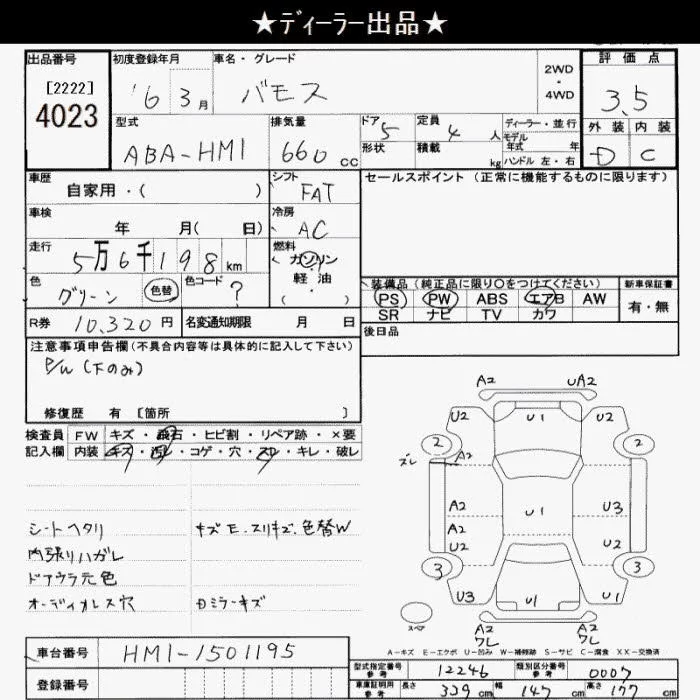 ★ディーラー出品★
出品番号 初度登録年月 車名・グレード 2WD・4WD 評価点
[2222]
4023
'6 3月 バモス 3.5
型式 排気量 ドア 定員 ディーラー・並行 外装 内装
ABA-HM1 660cc 5 4人 モデル年式 年 D C
形状 積載 kg ハンドル 左・右
車歴 シフト セールスポイント(正常に機能するものに限ります)
自家用・( ) FAT
車検 冷房
年 月( 日) AC
走行 燃料
5万6千198km ガソリン
軽油
( ・ )
色 色コード 装備品(純正品に限り○をつけてください) 新車保証書
グリーン 色替 ? PS PW ABS エアB AW 有・無
SR ナビ TV カワ
R券 10,320円 名変通知期限 月 日 後日品
注意事項申告欄(不具合内容等は具体的に記入して下さい)
P/W(下のみ)
修復歴 有 [箇所 ]
検査員 FW キズ・飛石・ヒビ割・リペア跡・×要
記入欄 内装 キズ・汚れ・コゲ・穴・スレ・キレ・破レ
シートヘタリ キズE.スリキズ.色替W
内張リハガレ
ドアウラ元色
オーディオレス穴 Dミラーキズ
A2 UA2
U2 U1 U2
2 2
ズレ A2
A2 U1 U3
A2
U2 U2
3 3
U3 U1 U3
スペア
A2 A2
ワレ ワレ
A-キズ E-エクボ U-凹み W-補修跡 S-サビ C-腐食 XX-交換済
車台番号 HM1-1501195
型式指定番号 参考 12246 類別区分番号 参考 0007
登録番号
車庫証明用 参考 長さ 339cm 幅 147cm 高さ 177cm